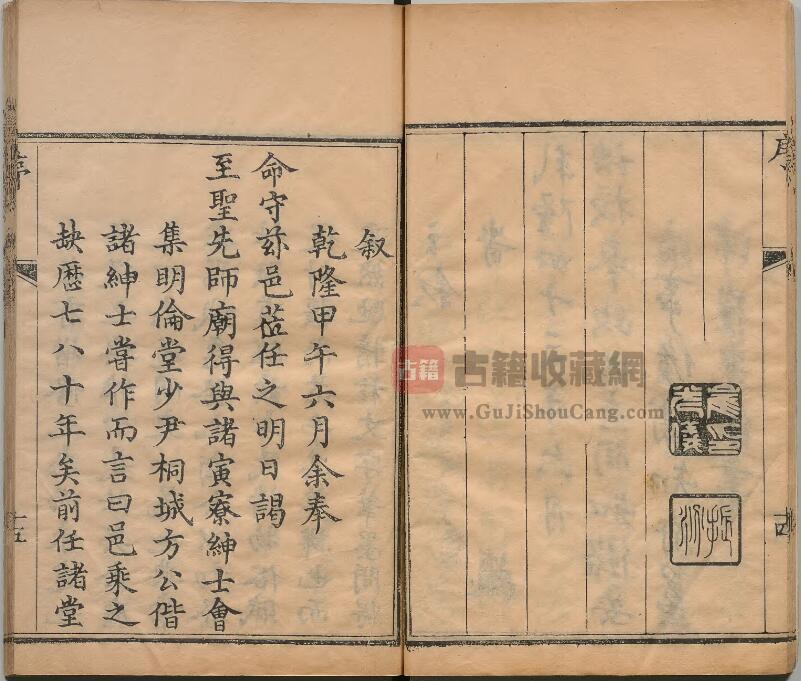 序
古籍
古籍收藏網
www.GuJiShouCang.com
叙
乾隆甲午六月余奉
命守茲邑蒞任之明日謁
至聖先師廟得與諸寅寮紳士會
集明倫堂少尹桐城方公偕
諸紳士嘗作而言曰邑乘之
缺歷七八十年矣前任諸堂
序
十五